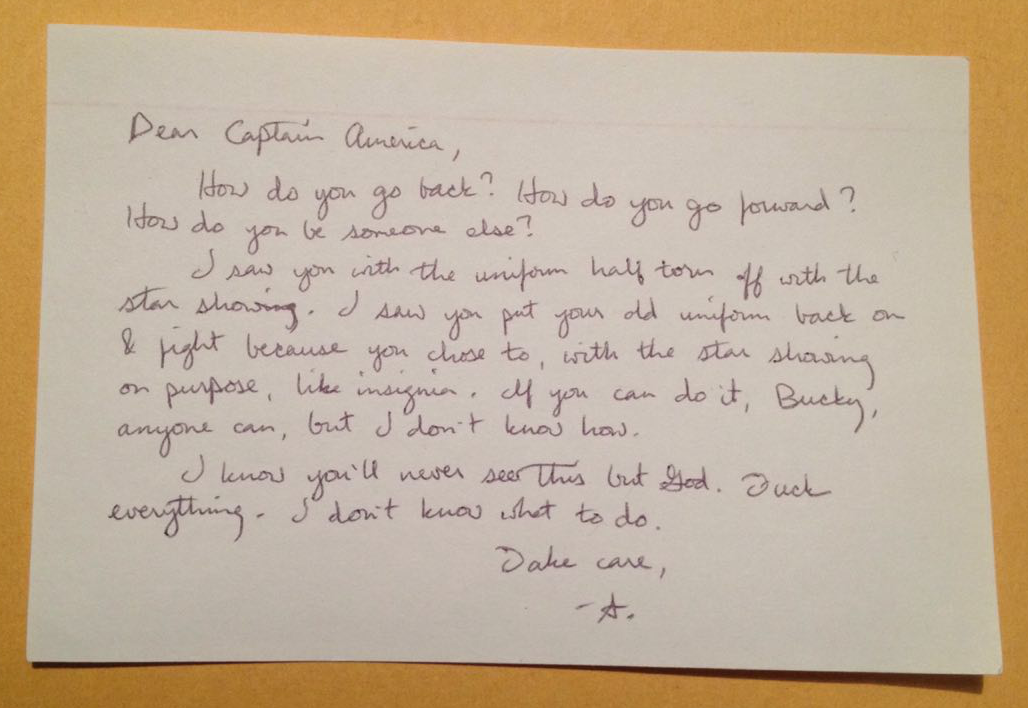 Dear Captain America,
How do you go back? How do you go forward?
How do you be someone else?
I saw you with the uniform half torn off with the
star showing. I saw you put your old uniform back on
& fight because you chose to, with the star showing
on purpose, like insignia. If you can do it, Bucky,
anyone can, but I don't know how.
I know you'll never see this but God. Fuck
everything. I don't know what to do.
Take care,
-A.